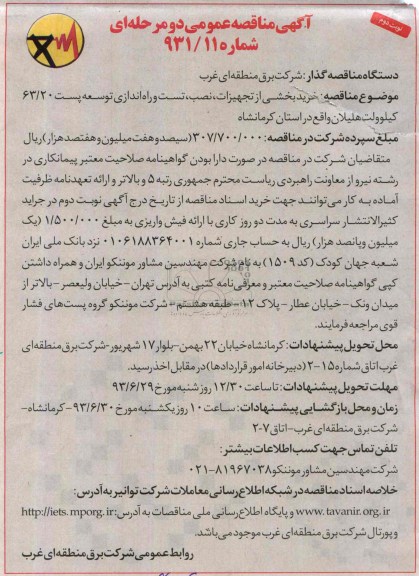 نوبت دوم
آگهی مناقصه عمومی دو مرحله‌ای
شماره ۹۳۱/۱۱
دستگاه مناقصه گذار: شرکت برق منطقه‌ای غرب
موضوع مناقصه: خرید بخشی از تجهیزات، نصب، تست و راه اندازی توسعه پست ۶۳/۲۰
کیلوولت هلیلان واقع در استان کرمانشاه
مبلغ سپرده شرکت در مناقصه: ۳۰۷/۷۰۰/۰۰۰ (سیصد و هفت میلیون و هفتصد هزار) ریال
متقاضیان شرکت در مناقصه در صورت دارا بودن گواهینامه صلاحیت معتبر پیمانکاری در
رشته نیرو از معاونت راهبردی ریاست محترم جمهوری رتبه ۵ و بالاتر و ارائه تعهدنامه ظرفیت
آماده به کار می‌توانند جهت خرید اسناد مناقصه از تاریخ درج آگهی نوبت دوم در جراید
کثیرالانتشار سراسری به مدت دو روز کاری با ارائه فیش واریزی به مبلغ ۱/۵۰۰/۰۰۰ (یک
میلیون و پانصد هزار) ریال به حساب جاری شماره ۰۱۰۶۱۸۸۳۶۴۰۰۱ نزد بانک ملی ایران
شعبه جهان کودک (کد ۱۵۰۹) به نام شرکت مهندسین مشاور موننکو ایران و همراه داشتن
کپی گواهینامه صلاحیت معتبر و معرفی نامه کتبی به آدرس تهران - خیابان ولیعصر - بالاتر از
میدان ونک - خیابان عطار - پلاک ۱۲ - طبقه هشتم - شرکت موننکو گروه پست‌های فشار
قوی مراجعه فرمایند.
محل تحویل پیشنهادات: کرمانشاه خیابان ۲۲ بهمن - بلوار ۱۷ شهریور - شرکت برق منطقه‌ای
غرب اتاق شماره ۱۵-۲ (دبیرخانه امور قراردادها) در مقابل اخذ رسید.
مهلت تحویل پیشنهادات: تا ساعت ۱۲/۳۰ روز شنبه مورخ ۹۳/۶/۲۹
زمان و محل بازگشایی پیشنهادات: ساعت ۱۰ روز یکشنبه مورخ ۹۳/۶/۳۰ - کرمانشاه -
شرکت برق منطقه‌ای غرب - اتاق ۷-۲
تلفن تماس جهت کسب اطلاعات بیشتر:
شرکت مهندسین مشاور موننکو ۸۱۹۶۷۰۳۸-۰۲۱
خلاصه اسناد مناقصه در شبکه اطلاع رسانی معاملات شرکت توانیر به آدرس:
www.tavanir.org.ir و پایگاه اطلاع رسانی ملی مناقصات به آدرس: http://iets.mporg.ir
و پورتال شرکت برق منطقه‌ای غرب موجود می‌باشد.
روابط عمومی شرکت برق منطقه‌ای غرب